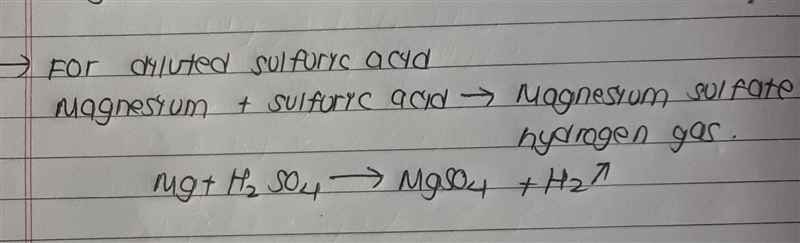 → For diluted sulfuric acid
Magnesium + sulfuric acid → Magnesium sulfate
hydrogen gas.
Mg + H₂SO₄ → MgSO₄ + H₂↑